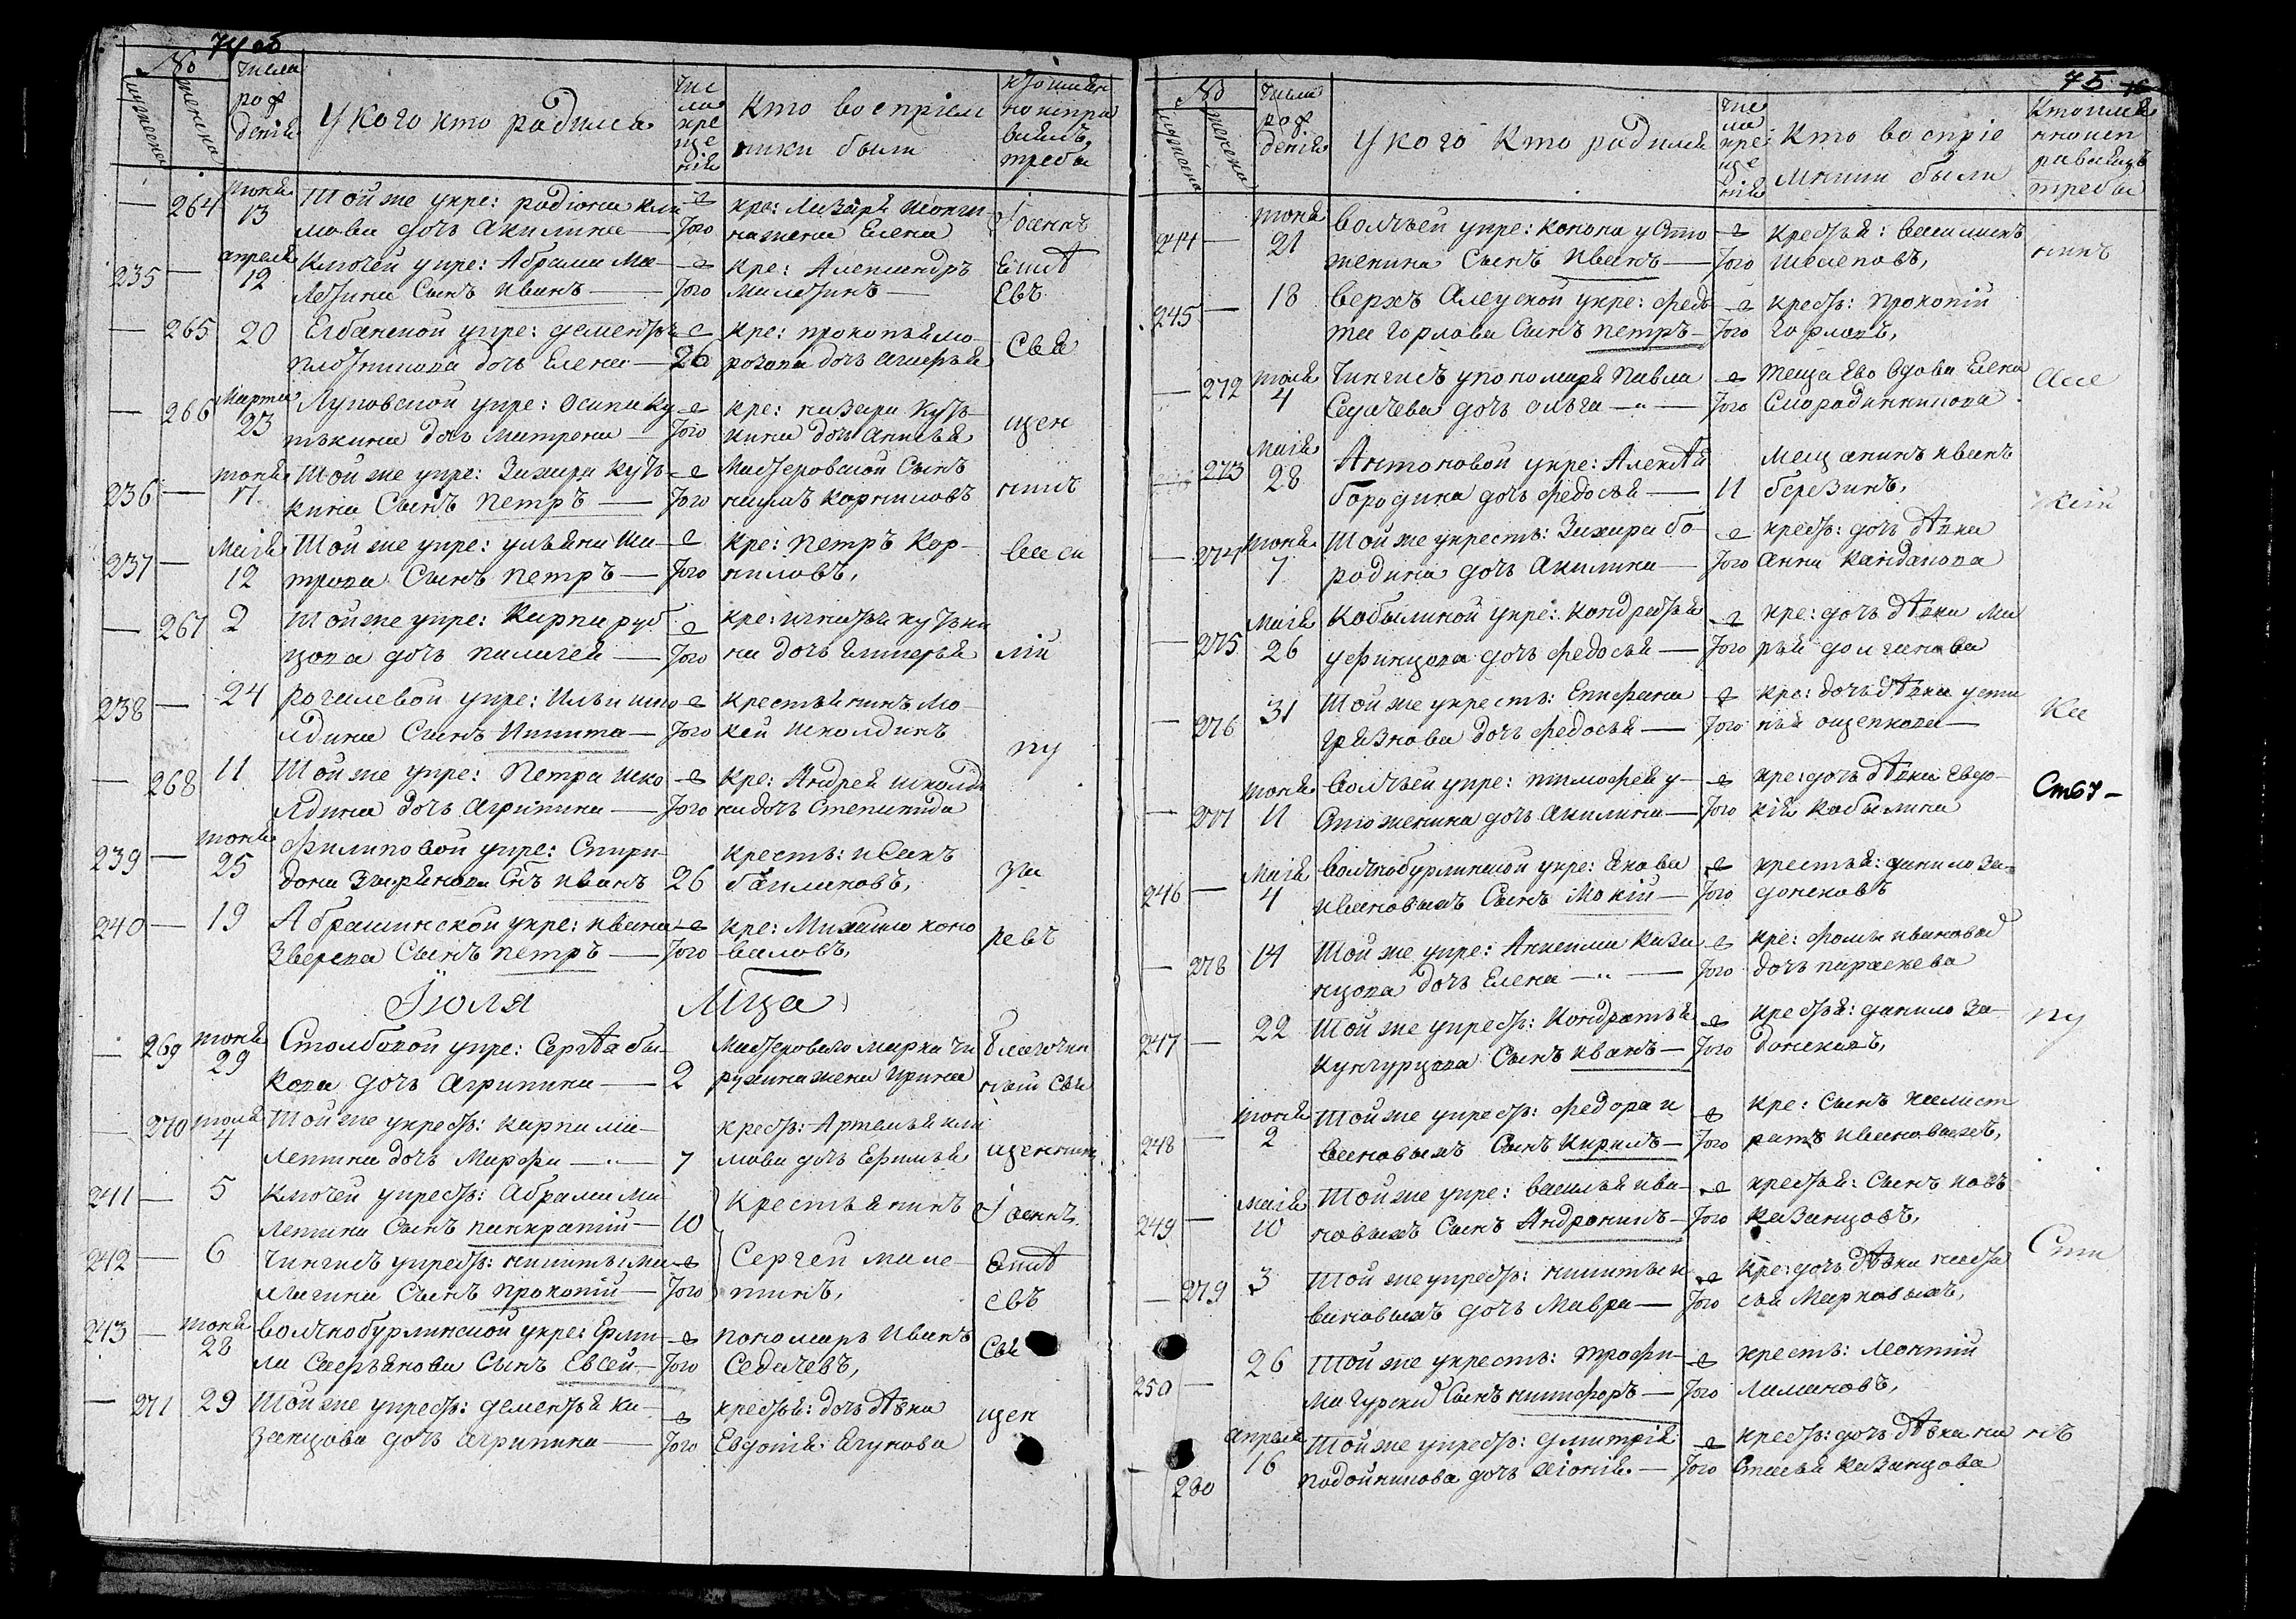 74 об
№
мужеска
женска
числа
рож
денія
У кого кто родился
чис
ла
кре
ще
нія
кто воспріем
ники были
кто имян
но испра
влялъ
требы
264
Іюня
13
той же у кре: радіона кли
мова дочь Акилина
е
того
кре: Лазаря
на жена Елена
Іоаннъ
235
апреля
12
Ключей у кре: Абрама Ма-
сынъ иванъ
е
того
кре: Александръ
Еліс
евъ
265
20
у кре: дементья
плотникова дочь Елена
е
26
кре: прокопья мо-
розова дочь
Свя
266
марта
23
у кре: осипа ку
тькина дочь матрена
е
того
кре: назара куть-
кина дочь анисья
щен
236
Іюня
17
той же у кре: захара куть-
кина сынъ петръ
е
того
мастеровской сынъ
корниловъ
никъ
237
маія
12
той же у кре: ульяна ша-
трова сынъ петръ
е
того
кре: петръ кор-
ниловъ,
васи
267
2
той же у кре: карпа руб
цова дочь пелагея
е
того
кре: игнатья кутьки
на дочь
лій
238
24
рогалевой у кре: ильи шко
лдина сынъ никита
е
того
крестьянинъ мо-
кей школдинъ
268
11
той же у кре: петра шко
лдина дочь агрипина
е
того
кре: Андрея школди
на дочь степанида
пу
239
Іюня
25
филиповой у кре: спири-
дона сынъ иванъ
26
кресть: иванъ
баклановъ,
за
240
19
Абрашинской у кре: ивана
зверева сынъ петръ
е
того
кре: Михайло коно
валовъ,
ревъ
Іюля Мца
269
Іюня
29
Столбовой у кре: Сергѣя бы-
кова дочь агрипина
2
мастероваго марка чи
рухина жена ирина
благочин
ный свя
270
Іюля
4
той же у крест: карпа ма-
летина дочь марфа
7
крест: Артемья кли
мова дочь ефимья
щенникъ
241
5
Ключей у крест: абрама ма
летина сынъ панкратій
10
крестьянинъ
Іоаннъ
242
6
чингисъ у крест: никиты ма
лыгина сынъ прокопій
е
того
Сергей мале-
тинъ,
Еліс
евъ
243
Іюня
28
волчнобурлинской у кре: Ерми
ла Саерьянова сынъ Евсей
е
того
пономарь иванъ
Седачевъ,
Свя
271
29
той же у крест: дементья ка-
занцова дочь агрипина
е
того
крестья: дочь дѣвка
Евдокія ягунова
щен
75
№
мужеска
женска
числа
рож
денія
У кого кто родился
чис
ла
кре
ще
нія
Кто воспріе
мники были
Кто имя
нно исп
равлялъ
требы
244
Іюня
21
волчьей у кре: конона усто
женина сынъ иванъ
е
того
крестья: василискъ
шелеповъ,
никъ
245
18
верхъ Алеуской у кре: федо
та горлова сынъ петръ
е
того
крестъ: прокопій
горловъ,
272
Іюля
4
чингисъ у пономаря павла
Седачева дочь ольга
е
того
теща ево вдова Елена
Смородинникова
Але
273
маія
28
Антоновой у кре: Алексѣя
бородина дочь федосья
11
мещанинъ иванъ
березинъ,
274
Іюня
7
той же у кресть: захара бо-
родина дочь акилина
е
того
крест: дочь дѣвка
анна кайдалова
ксій
275
маія
26
кабылиной у кре: кондратья
уфинцова дочь федосья
е
того
кре: дочь дѣвка ма
рья долганова
276
31
той же у кресть: епифана
грязнова дочь федосья
е
того
кре: дочь дѣвка усти
нья ощепкова
Ка
277
Іюня
11
волчьей у кре: тимофея у-
стюженина дочь акилина
е
того
кре: дочь дѣвка Евдо-
кія кобылина
246
маія
4
волчнобурлинской у кре: якова
ивановыхъ сынъ мокій
е
того
крестья: данило за-
донсковъ
278
14
той же у кре: Анисима каза
нцова дочь Елена
е
того
кре: фомы ивановыхъ
дочь параскева
247
22
той же у крест: Кондратья
кунгурцова сынъ иванъ
е
того
крестья: данило за-
донсковъ,
пу
248
Іюня
2
той же у крест: федора и
вановыхъ сынъ кирилъ
е
того
кре: сынъ калист
ратъ ивановыхъ,
249
маія
10
той же у кре: василья ива-
новыхъ сынъ Андроникъ
е
того
крестья: сынъ
казанцовъ,
279
3
той же у крест: никиты и
вановыхъ дочь мавра
е
того
кре: дочь дѣвка наста
сья марковыхъ,
Сти
250
26
той же у кресть: трофи-
ма сынъ никифоръ
е
того
кресть: Леонтій
лимановъ,
280
апреля
16
той же у крест: дмитрія
подойникова дочь хіонія
е
того
крест: дочь дѣвка на
стасья казанцова
нъ